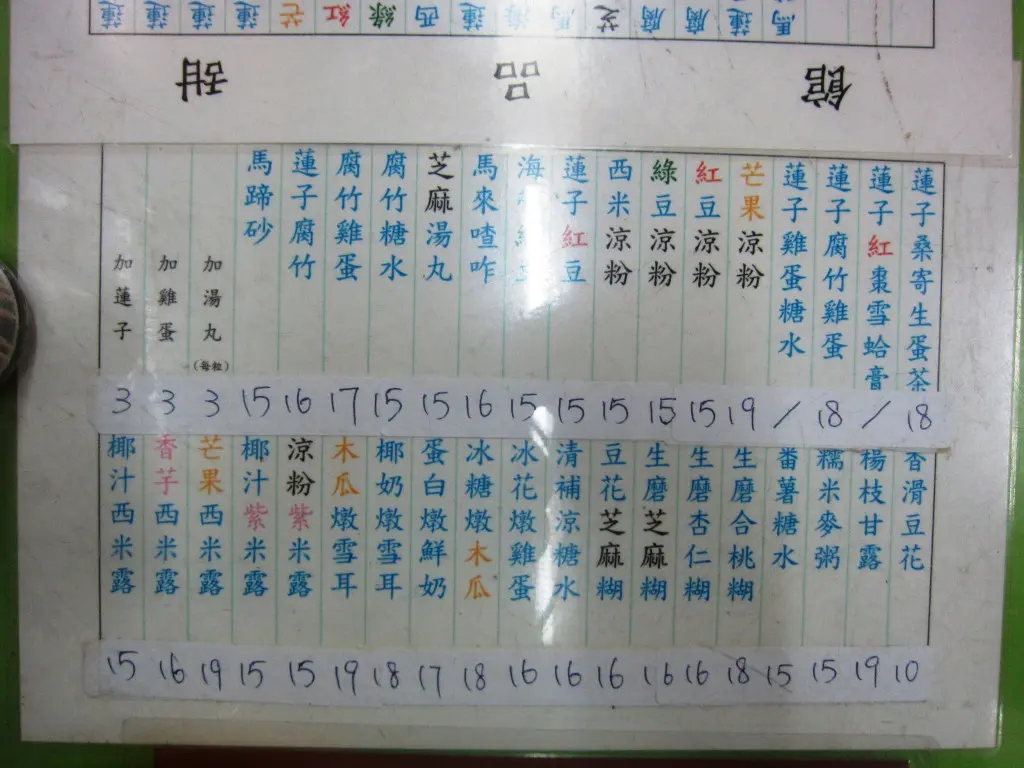 蓮
蓮
蓮
蓮
芒
紅
綠
西
蓮
海
馬
芝
腐
腐
蓮
馬
甜品館
蓮子桑寄生蛋茶
蓮子紅棗雪蛤膏
蓮子腐竹雞蛋
蓮子雞蛋糖水
芒果涼粉
紅豆涼粉
綠豆涼粉
西米涼粉
蓮子紅豆
海
馬來喳咋
芝麻湯丸
腐竹糖水
腐竹雞蛋
蓮子腐竹
馬蹄砂
加湯丸(每粒)
加雞蛋
加蓮子
3 3 3 15 16 17 15 15 16 15 15 15 15 15 19 / 18 / 18
香滑豆花
楊枝甘露
糯米麥粥
番薯糖水
生磨合桃糊
生磨杏仁糊
生磨芝麻糊
豆花芝麻糊
清補涼糖水
冰花燉雞蛋
冰糖燉木瓜
蛋白燉鮮奶
椰奶燉雪耳
木瓜燉雪耳
涼粉紫米露
椰汁紫米露
芒果西米露
香芋西米露
椰汁西米露
15 16 19 15 15 19 18 17 18 16 16 16 16 16 18 15 15 19 10